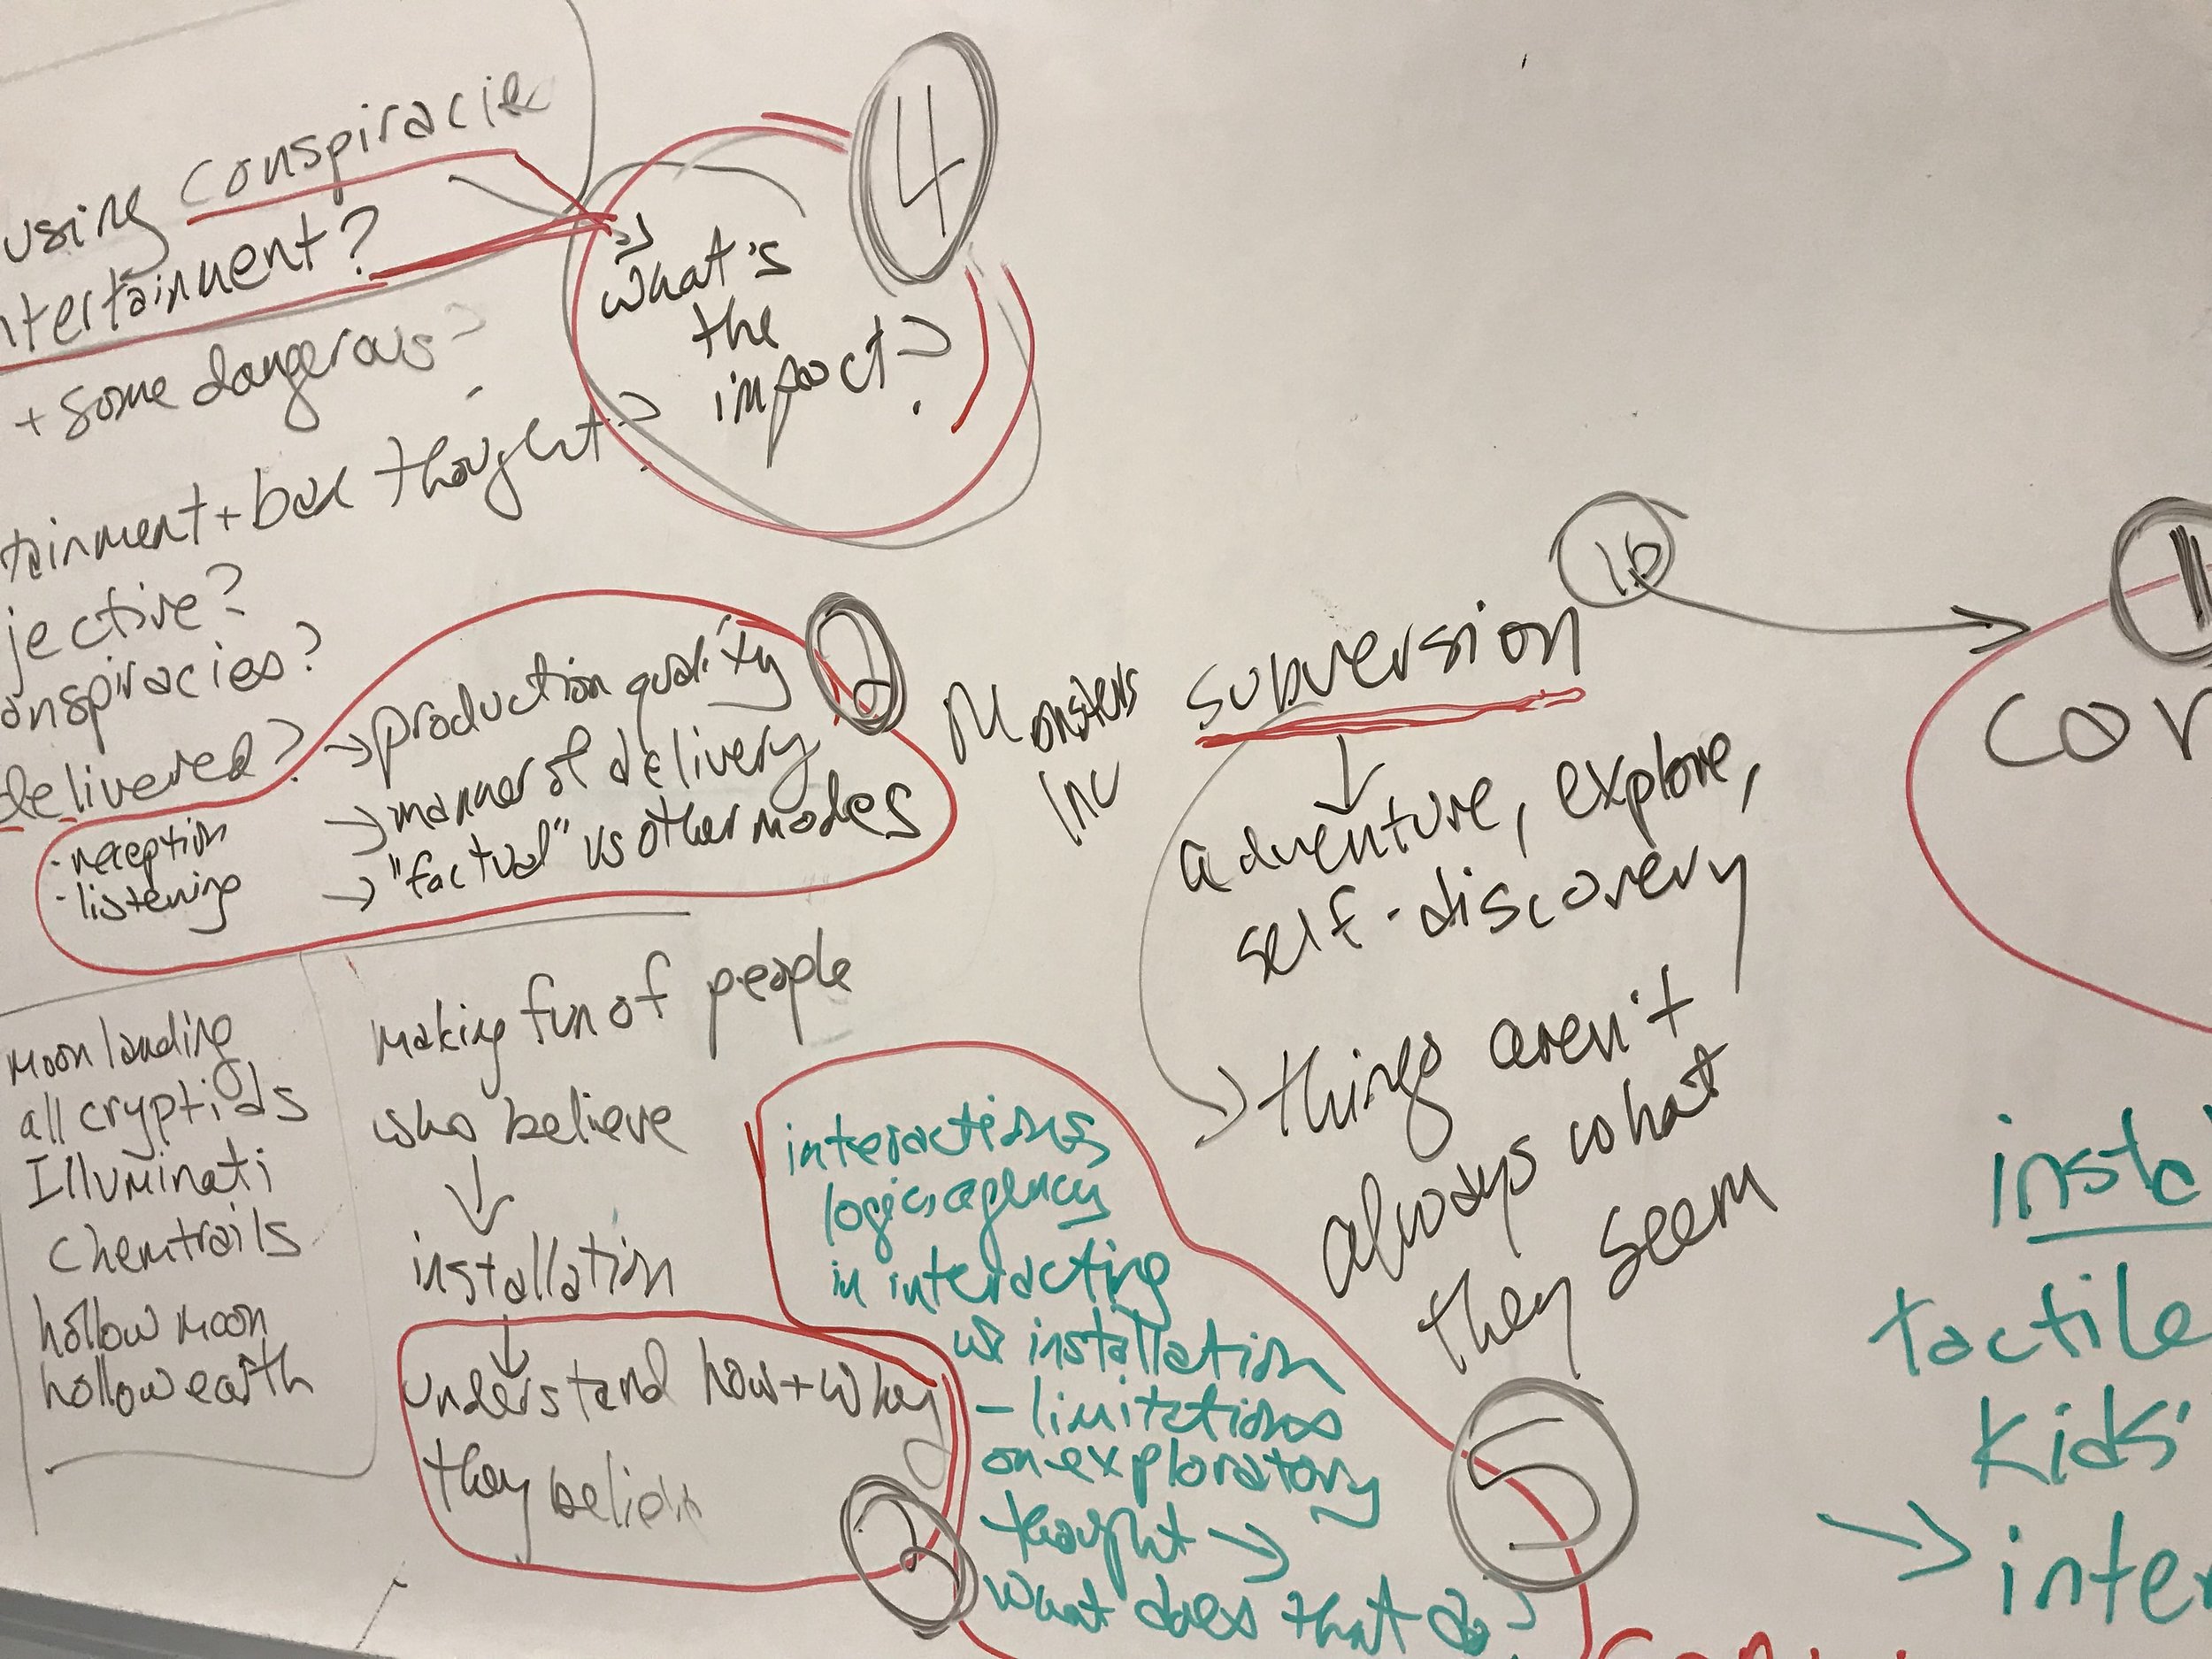 using conspiracie
ntertainment?
+ some dangerous?
tainment + box thought?
jective?
onspiracies?
delivered?
4
what's
the
impact?
2
→ production quality
→ manner of delivery
→ "factual" vs other modes
· reception
· listening
Moon landing
all cryptids
Illuminati
Chemtrails
hollow moon
hollow earth
making fun of people
who believe
↓
installation
↓
understand how + why
they believe
3
Monsters
Inc
1b
subversion
↓
adventure, explore,
self-discovery,
→ things aren't
always what
they seem
interactions
logic, agency
in interacting
w/ installation
- limitations
on exploratory
thought →
what does that do?
5
1
cor
insta
tactile
kids'
→ inter